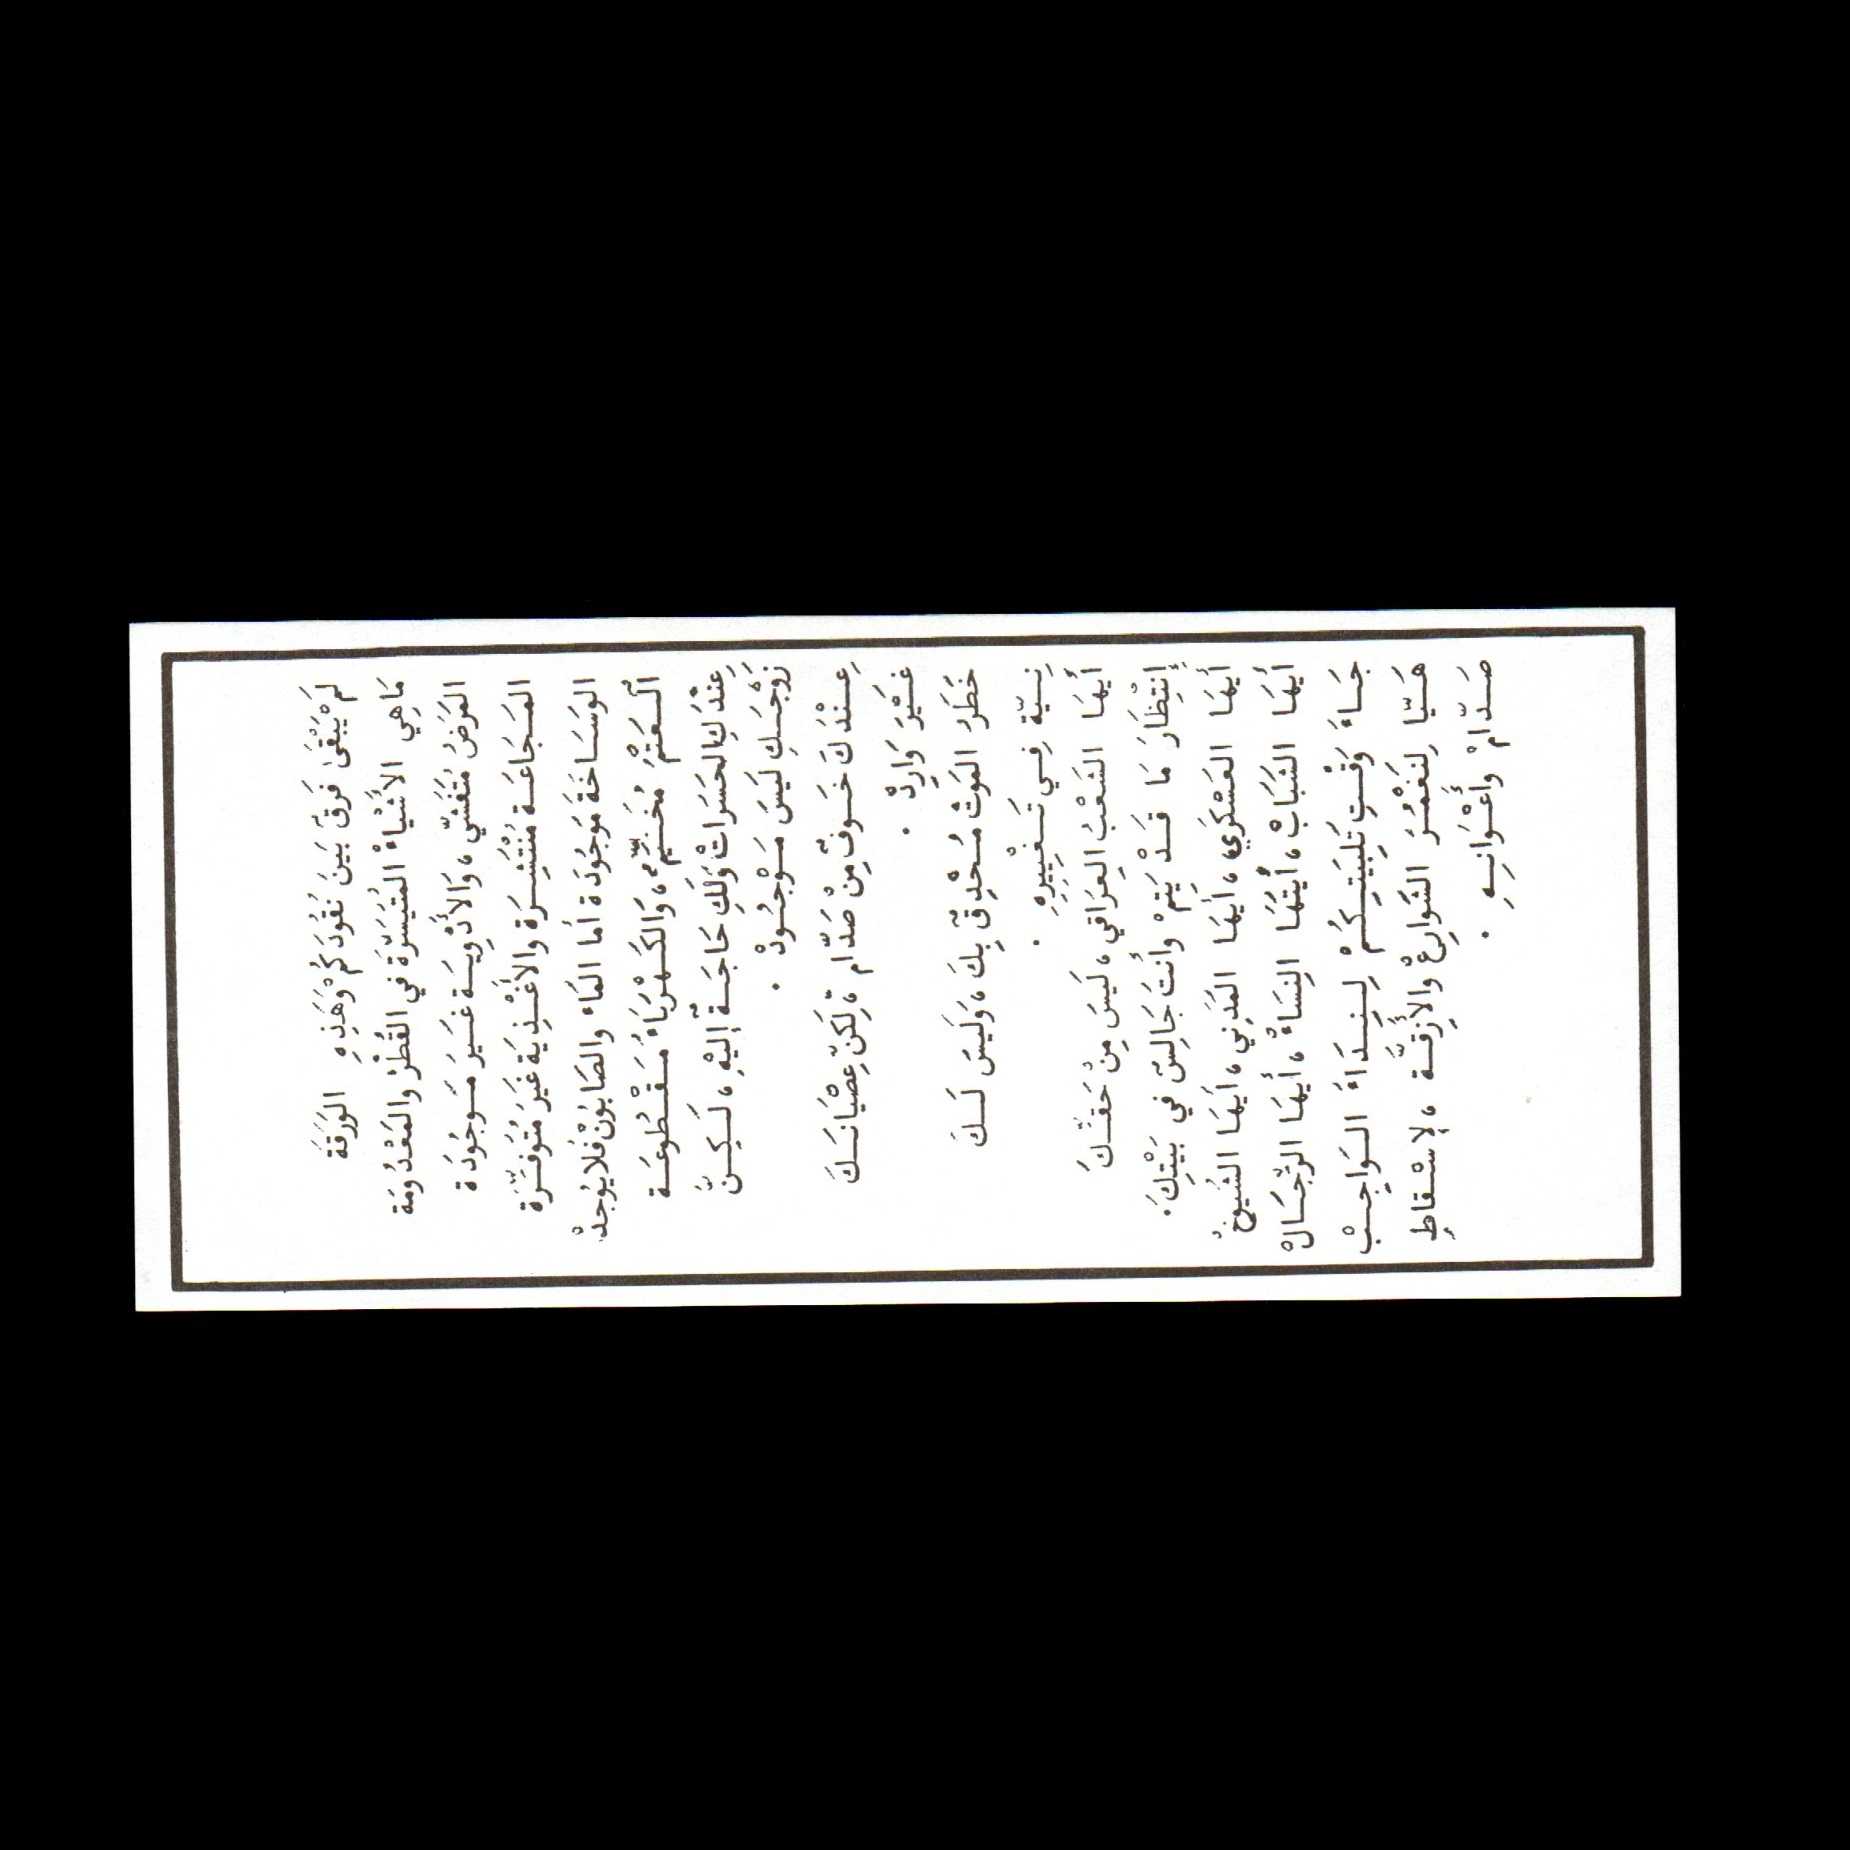 لَمْ يَبْقَىٰ فَرقٌ بَينَ نُقُودَكُمْ وَهَذِهِ الوَرَقَة
مَاهِي الأَشْيَاءْ المُتَيَسَّرَة في القُطْرْ والمَعْدُومَة
المَرَضُ مُتَفَشّي، وَالأَدْوِيَة غَيرَ مَوجُودَة
المَجَاعَة مُنْتَشِرَة والأَغْذِيَة غَيَر مُتَوفَّرَة
الوَسَاخَة مَوجُودَة أما المَاء والصَابُونْ فَلا يُوجَدْ
ألعَتْمُ مُخَيّمٌ، وَالكَهْرَبَاءُ مَقْطُوعَة
عِنْدَكِ الحَسَرَاتْ وَلَكِ حَاجَةٌ إليْهِ، لَكِنَّ
زَوْجَكِ لَيسَ مَوْجُودْ.
عِنْدَكَ خَوفٌ مِنْ صَدّام، لَكِنّ عِصْيَانَكَ
غَيْرَ وَارِدْ.
خَطَرُ المَوتْ مُحْدِقٌ بِكَ، وَلَيسَ لَكَ
نِيّة فِي تَغْيِيرِهِ.
أيهَا الشَعْبُ العِرَاقي، لَيسَ مِنْ حَقّكَ
إنتِظَارَ مَا قَدْ يَتِمْ وأنتَ جَالِسٌ في بَيْتِكَ.
أيهَا العَسْكَرِي، أيهَا المَدَنِي، أيهَا الشُيوخُ
أيهَا الشَبَابْ، أيتُهَا النِسَاءْ، أيهَا الرِّجَالْ
جَاءَ وَقْتِ تَلبِيَتِكُمْ لِنِدَاءَ الوَاجِبْ
هَيّا لِنَغْمُرَ الشَوارِعْ والأَزِقَّة، لإسْقاطِ
صَدّامْ وأعْوَانِهِ.